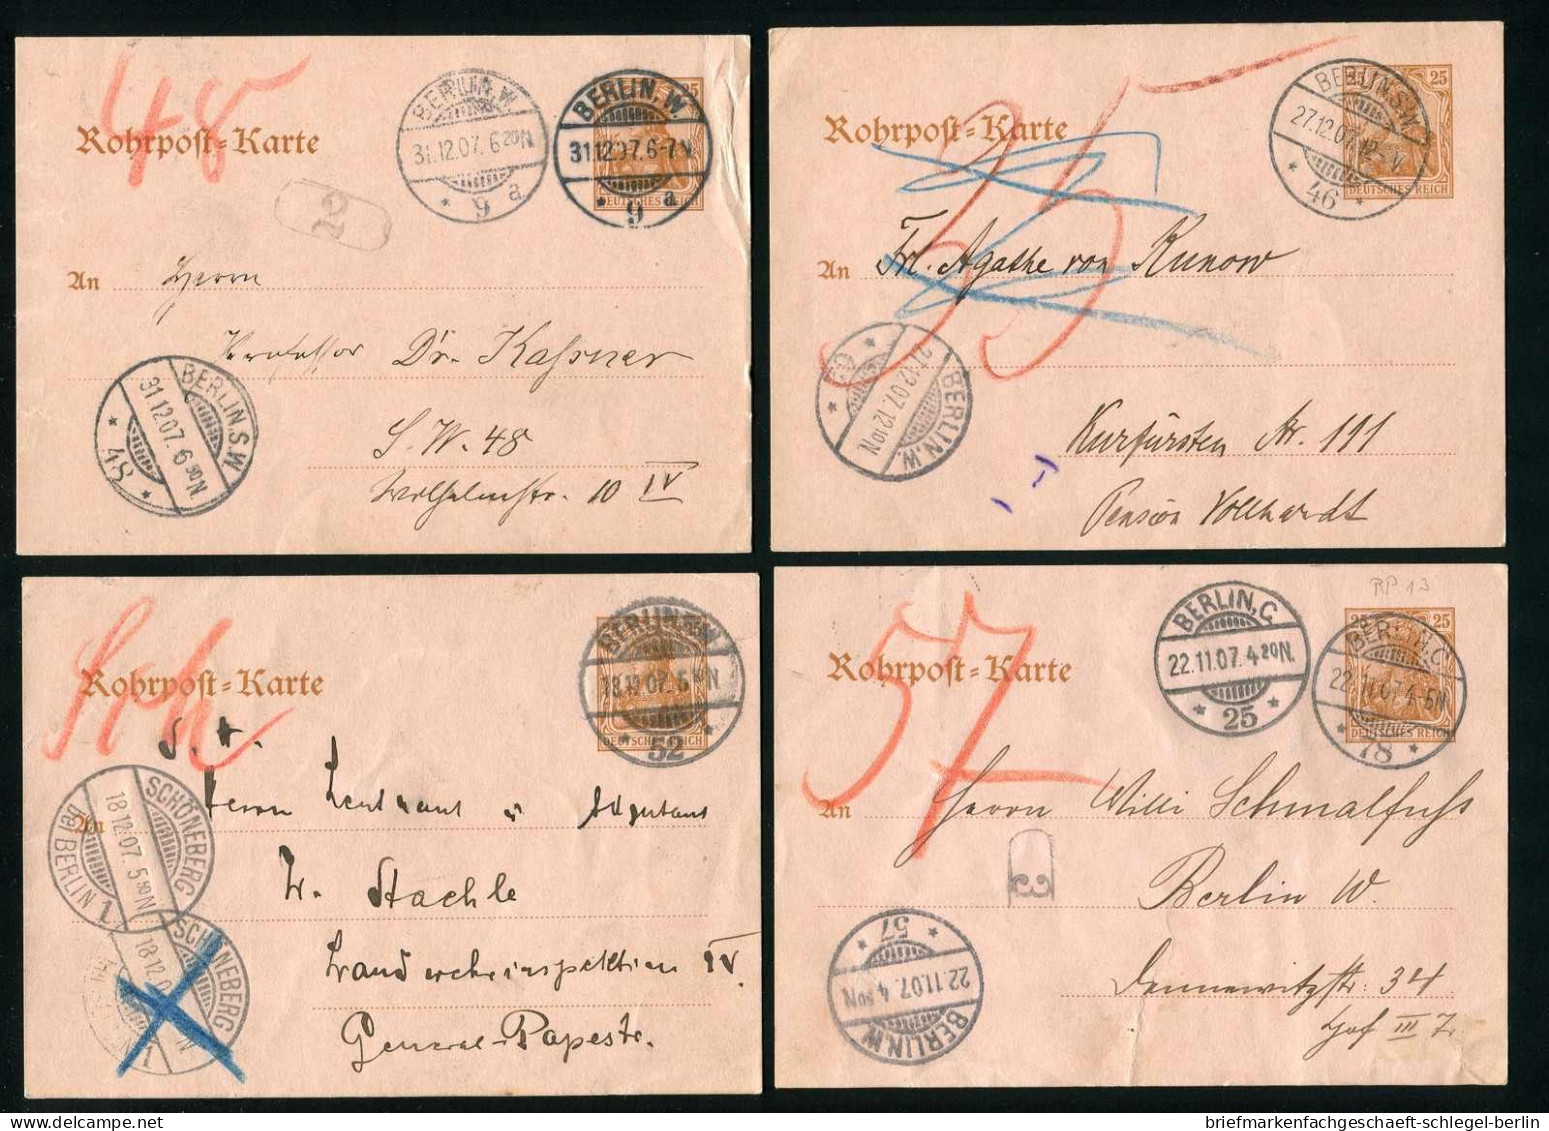 48
Rohrpost-Karte
BERLIN, W.
31.12.07. 6 20 N
* 9 a
25
BERLIN, W.
31.12.07. 6-7 N
* 9 a
DEUTSCHES REICH
2
An Herrn
Professor Dr. Kassner
S.W. 48
Wilhelmstr. 10 IV
BERLIN, S.W.
31.12.07. 6 30 N
* 48 *
35
Rohrpost-Karte
25
BERLIN, S.W.
27.12.07. 12- V
* 46 *
DEUTSCHES REICH
An Frl. Agathe von Kunow
BERLIN, W.
27.12.07. 12 10 N
Kurfürsten Str. 111
Pension Vollhardt
T
Sch
Rohrpost-Karte
BERLIN, N.W.
18.12.07. 5 10 N
* 52 *
DEUTSCHES REICH
S. H.
An Herrn Leutnant u Adjutant
Stachle
Landwehrinspektion IV.
General-Papestr.
SCHÖNEBERG
18.12.07. 5 30 N
bei BERLIN 1.
SCHÖNEBERG
18.12.0
1.
57
Rohrpost-Karte
RP 13
BERLIN, C.
22.11.07. 4 20 N.
* 25 *
25 25
BERLIN, C.
22.11.07. 4-5 N
* 78 *
DEUTSCHES REICH
An Herrn Willi Schmalfuss
3
Berlin W.
Dennewitzstr: 34
Hof III Z.
BERLIN, W.
22.11.07. 4 50 N.
* 57 *
briefmarkenfachgeschaeft-schlegel-berlin